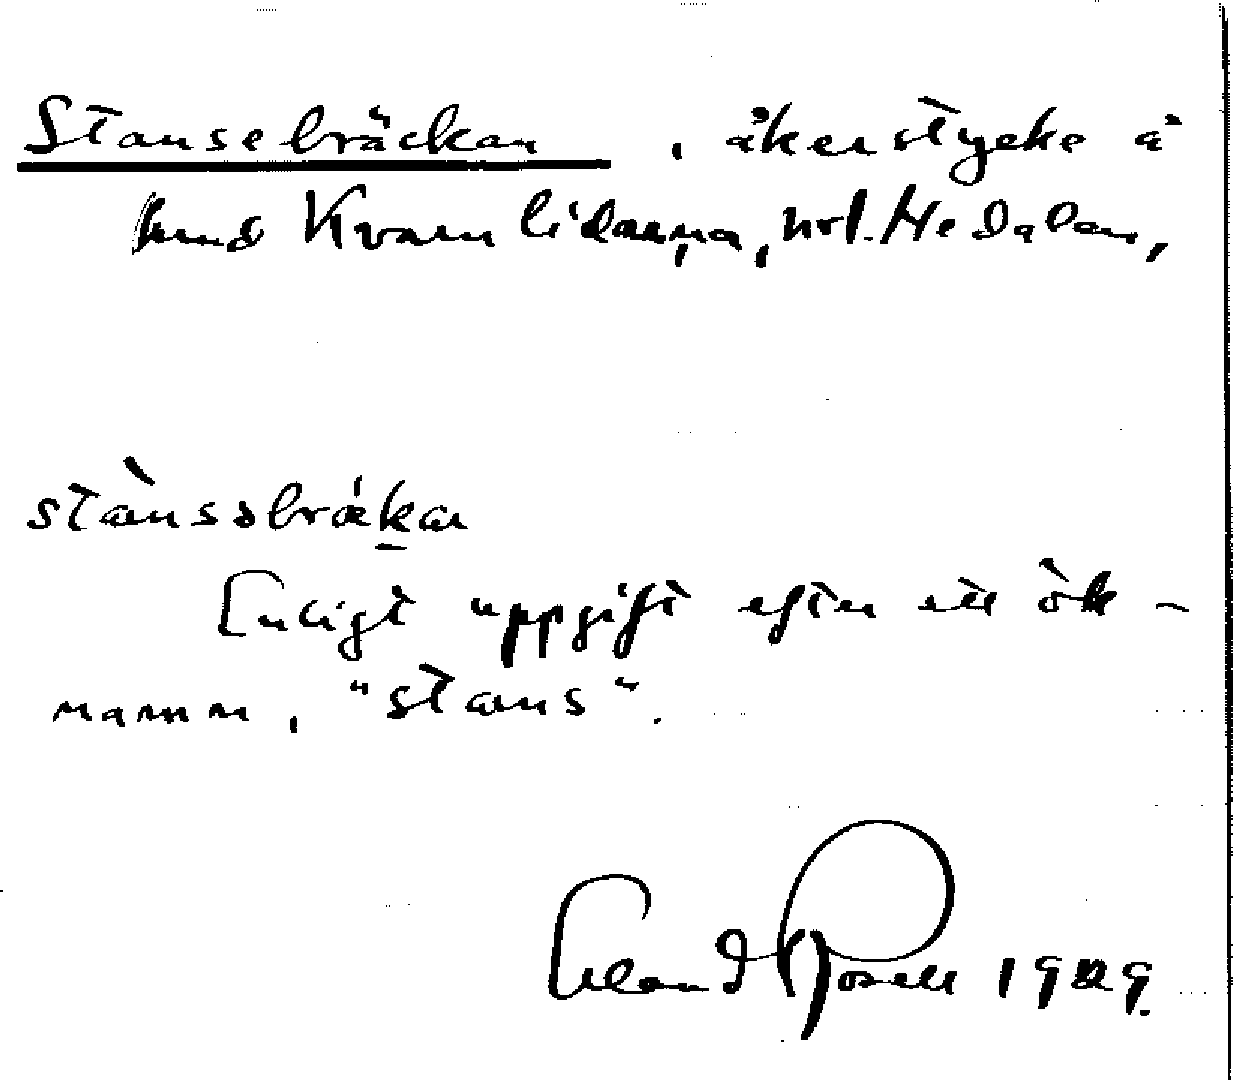 Stansebräckan, åkerstycke å
hmd Kvarnlidarna, nol. Hedalen,
stànssbrækar
Enligt uppgift efter ett ök-
namn, "stans".
Erland Rosell 1929.